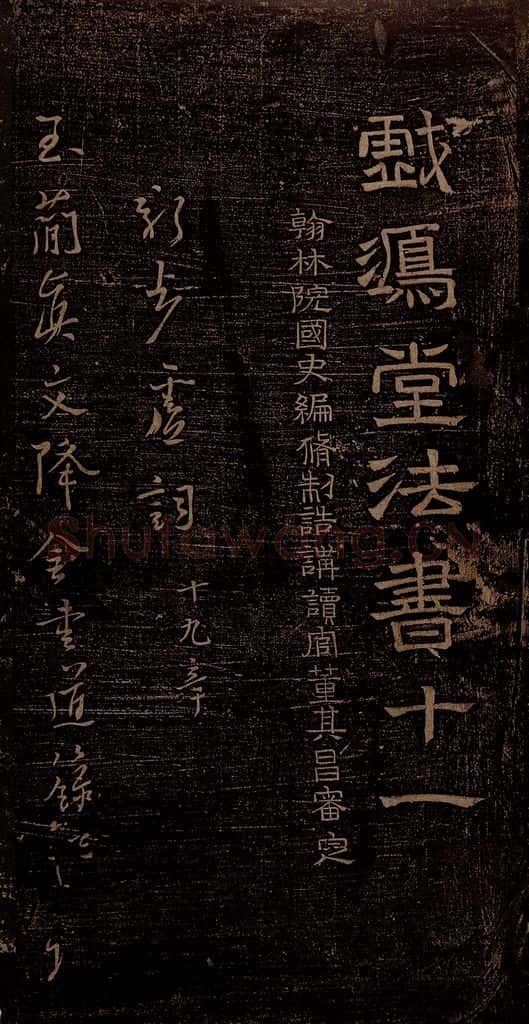 戲鴻堂法書十一
翰林院國史編脩制誥講讀官董其昌審定
新步虛詞 十九章
玉簡真文降金書道籙
Shufawang.cn